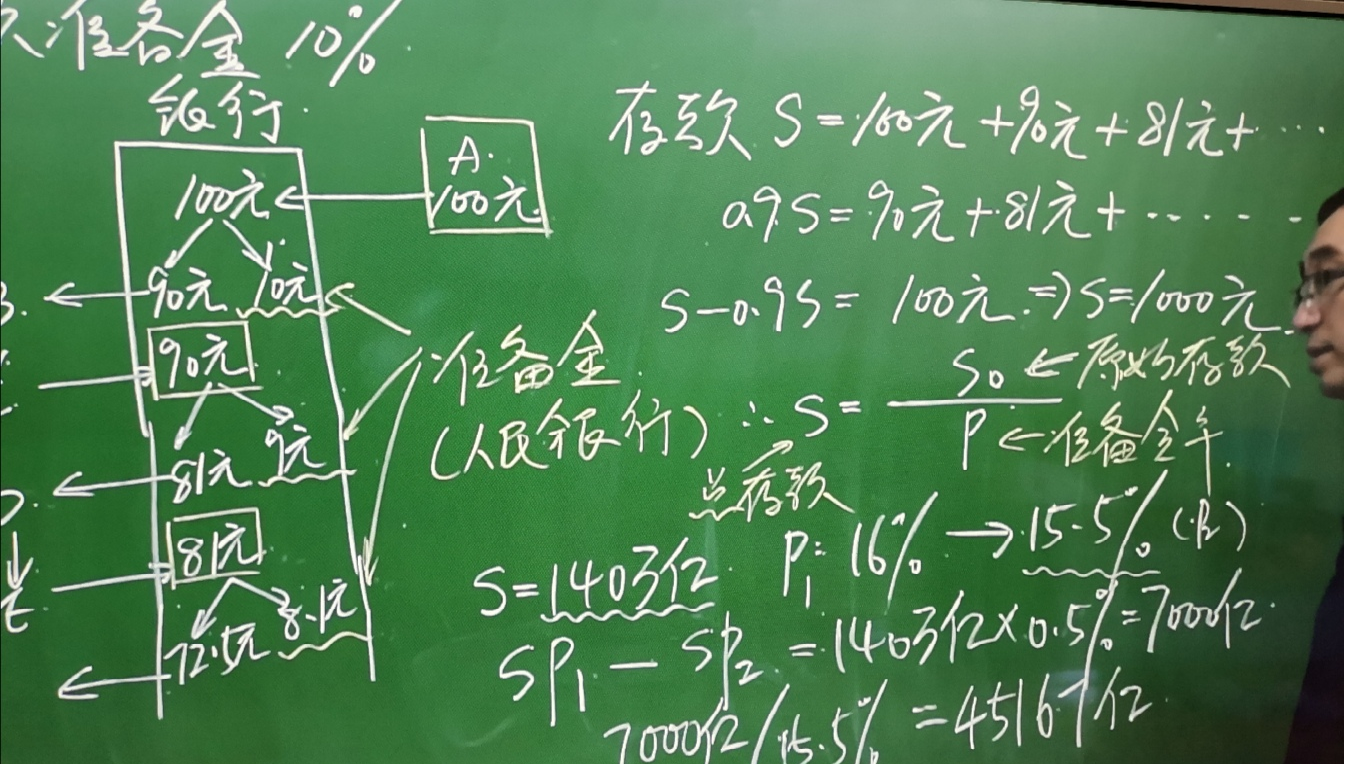 准备金 10%
银行
A
100元
100元
90元 10元
90元
81元 9元
81元
72.5元 8.1元
准备金
(人民银行)
存款 S=100元+90元+81元+……
0.9S=90元+81元+……
S-0.9S=100元⇒S=1000元
∴S=S₀/P
S₀←原始存款
P←准备金率
总存款
P₁=16%→15.5%(P₂)
S=140万亿
SP₁-SP₂=140万亿×0.5%=7000亿
7000亿/15.5%=45161亿